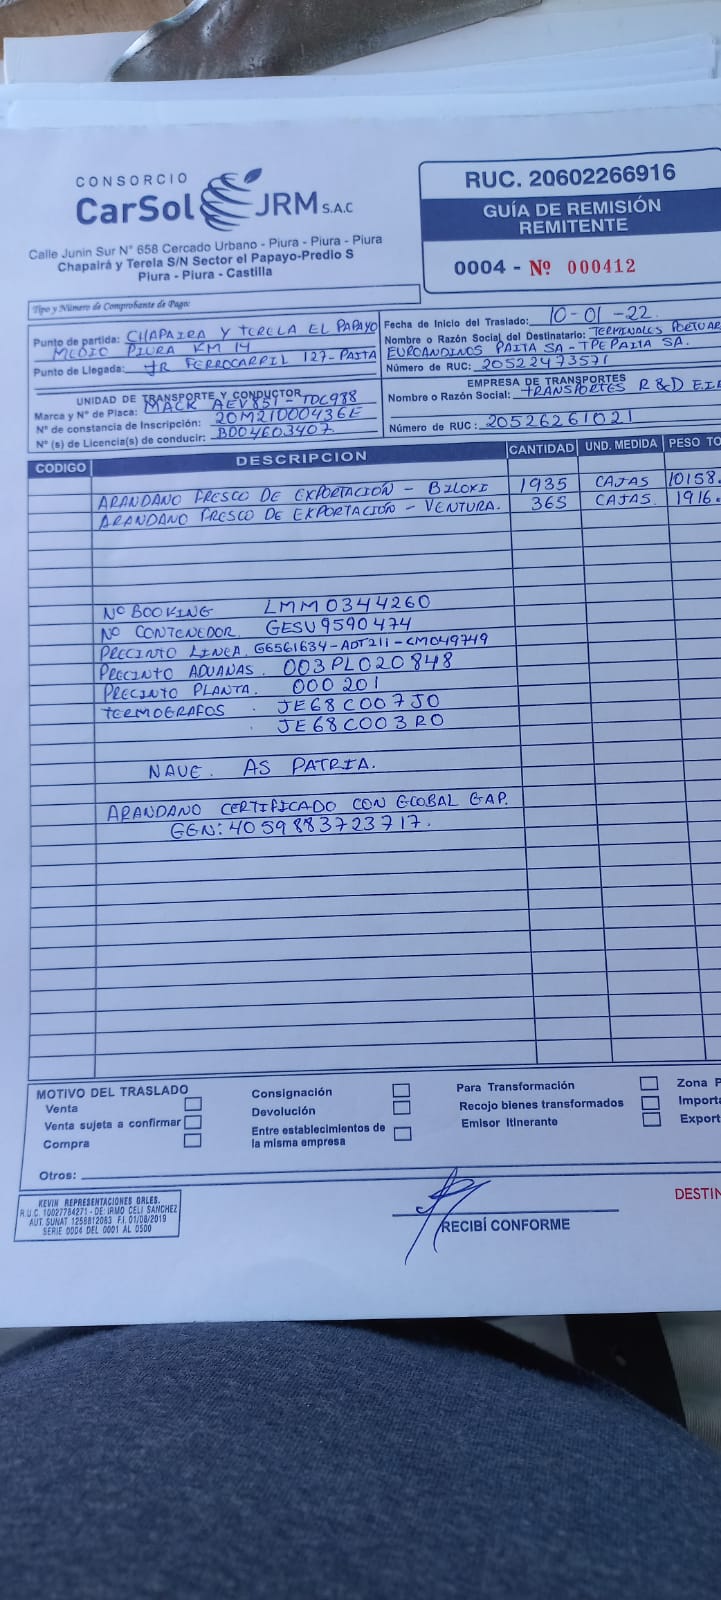 CONSORCIO
CarSol JRM S.A.C
Calle Junin Sur N° 658 Cercado Urbano - Piura - Piura - Piura
Chapairá y Terela S/N Sector el Papayo-Predio S
Piura - Piura - Castilla
RUC. 20602266916
GUÍA DE REMISIÓN
REMITENTE
0004 - Nº 000412
Tipo y Número de Comprobante de Pago:
Punto de partida: CHAPAIRA Y TERELA EL PAPAYO
MEDIO PIURA KM 14
Punto de Llegada: JR FERROCARRIL 127-PAITA
Fecha de Inicio del Traslado: 10-01-22.
Nombre o Razón Social del Destinatario: TERMINALES PORTUAR
EUROANDINOS PAITA SA - TPE PAITA SA.
Número de RUC: 20522473571
UNIDAD DE TRANSPORTE Y CONDUCTOR
Marca y N° de Placa: MACK AEV851-TDC988
N° de constancia de Inscripción: 20M21000436E
N° (s) de Licencia(s) de conducir: B004603407
EMPRESA DE TRANSPORTES
Nombre o Razón Social: TRANSPORTES R&D E.I.
Número de RUC: 20526261021
CODIGO DESCRIPCION CANTIDAD UND. MEDIDA PESO TO
ARANDANO FRESCO DE EXPORTACIÓN - BILOXI 1935 CAJAS 10158.
ARANDANO FRESCO DE EXPORTACIÓN - VENTURA. 365 CAJAS. 1916.
Nº BOOKING LMM0344260
Nº CONTENEDOR. GESU9590474
PRECINTO LINEA. G6561634-ADT211-CM049749
PRECINTO ADUANAS. 003PL020848
PRECINTO PLANTA. 000201
TERMOGRAFOS . JE68C007J0
. JE68C003R0
NAVE. AS PATRIA.
ARANDANO CERTIFICADO CON GLOBAL GAP.
GGN: 4059883723717.
MOTIVO DEL TRASLADO
Venta
Venta sujeta a confirmar
Compra
Consignación
Devolución
Entre establecimientos de
la misma empresa
Para Transformación
Recojo bienes transformados
Emisor Itinerante
Zona P
Importa
Export
Otros:
KEVIN REPRESENTACIONES GRLES.
R.U.C. 10027784271 - DE: IRMO CELI SANCHEZ
AUT. SUNAT 1258812063 F.I. 01/08/2019
SERIE 0004 DEL 0001 AL 0500
RECIBÍ CONFORME
DESTIN